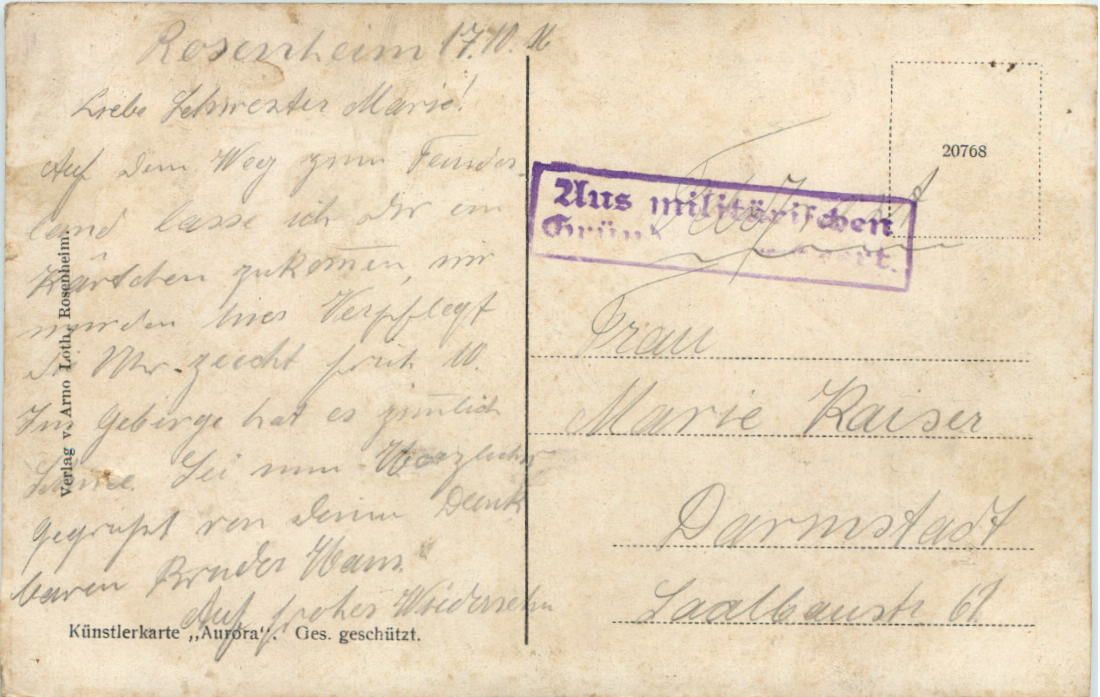 Rosenheim 17.10. 16
Liebe Schwester Marie!
Auf dem Weg zum Feindes-
land lasse ich Dir ein
Kärtchen zukom̅en, wir
wurden hier Verpflegt
die Uhr früh 10.
Im Gebirge hat es zimlich
Schnee. Sei nun Herzlichst
gegrüßt von deinem Dank
baren Bruder Hans.
Auf frohes Wiedersehn
Künstlerkarte „Aurora“. Ges. geschützt.
Verlag v. Arno Loth, Rosenheim
20768
Aus militärischen
Frau
Marie Kaiser
Darmstadt
Saalbaustr. 61.